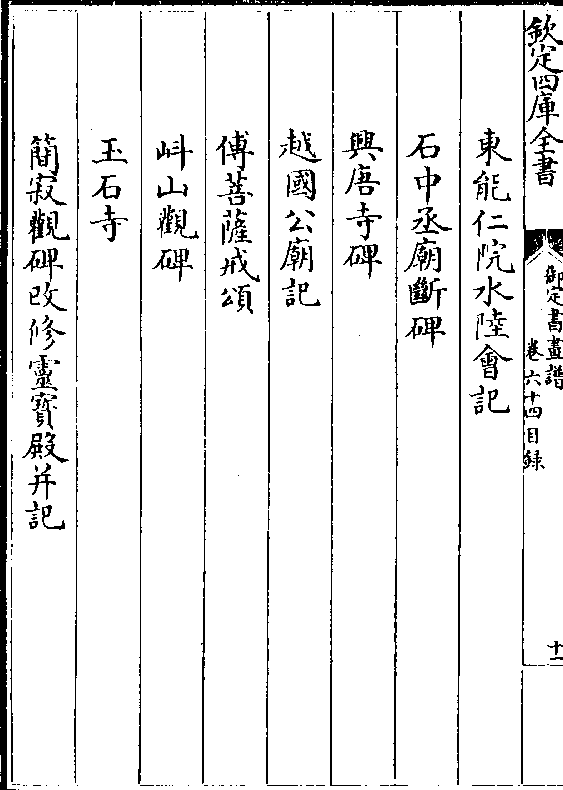 欽定四庫全書
御定書畫譜
卷六十四目録
十一
東能仁院水陸會記
石中丞廟斷碑
興唐寺碑
越國公廟記
傅菩薩戒頌
㪷山觀碑
玉石寺
簡寂觀碑改修靈寶殿并記